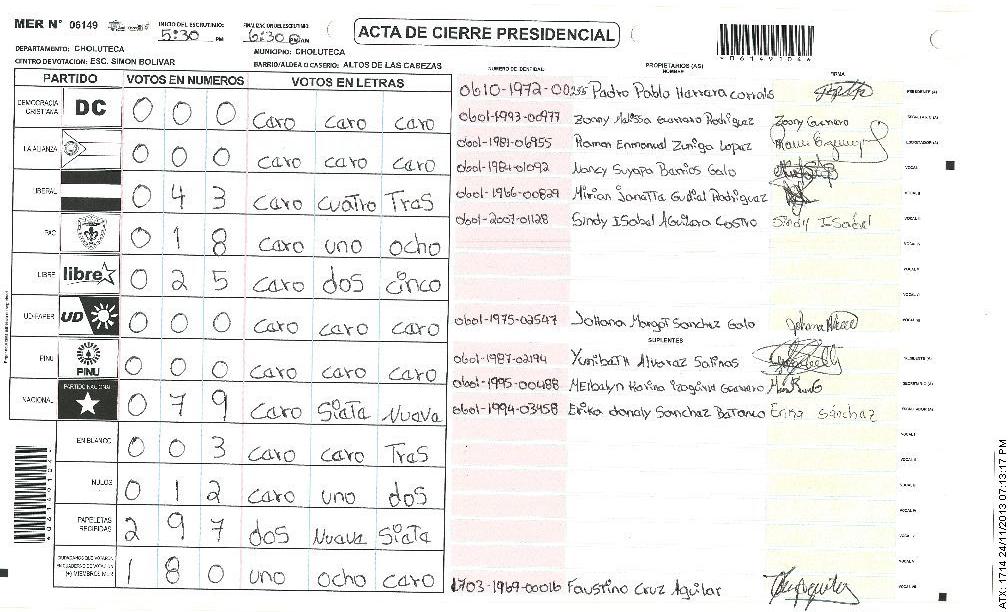 MER N° 06149
INICIO DEL ESCRUTINIO:
5:30 PM
FINALIZACION DEL ESCRUTINIO:
6:30 PM
ACTA DE CIERRE PRESIDENCIAL
DEPARTAMENTO: CHOLUTECA
MUNICIPIO: CHOLUTECA
CENTRO DE VOTACION: ESC. SIMON BOLIVAR
BARRIO/ALDEA O CASERIO: ALTOS DE LAS CABEZAS
PARTIDO VOTOS EN NUMEROS VOTOS EN LETRAS
DEMOCRACIA CRISTIANA DC 0 0 0 caro caro caro
LA ALIANZA 0 0 0 caro caro caro
LIBERAL 0 4 3 caro cuatro Tras
PAC 0 1 8 caro uno ocho
LIBRE libre 0 2 5 caro dos cinco
UD-FAPER UD 0 0 0 caro caro caro
PINU PINU 0 0 0 caro caro caro
NACIONAL PARTIDO NACIONAL 0 7 9 caro Siata Nuava
EN BLANCO 0 0 3 caro caro Tras
NULOS 0 1 2 caro uno dos
PAPELETAS RECIBIDAS 2 9 7 dos Nuava Siata
CIUDADANOS QUE VOTARON EN CUADERNO DE VOTACION (+) MIEMBROS MER 1 8 0 uno ocho caro
NUMERO DE IDENTIDAD PROPIETARIOS (AS) NOMBRE FIRMA
Padro Pablo Harrera corrals PRESIDENTE (A)
0601-1993-00977 Zonny Malissa Guarraro Rodriguez Zonny Guerrero SECRETARIO (A)
0601-1981-06955 Ramon Enmanual Zuniga Lopaz ESCRUTADOR (A)
0601-1984-01092 Nancy Suyapa Barrios Galo VOCAL I
0601-1966-00829 Mirian Janatta Gudial Rodriguaz VOCAL II
0601-2007-01128 Sindy ISabal Aguilara Castro Sindy ISabel
0601-1975-02547 Johana Margot Sanchaz Galo
SUPLENTES
0601-1987-02194 Yunibath Alvaraz Salinas PRESIDENTE (A)
0601-1995-00488 SECRETARIO (A)
0601-1994-03458 Erika donaly Sanchaz Erika Sánchaz ESCRUTADOR (A)
1703-1969-00016 Faustino Cruz Aguilar
ATX: 1714 24/11/2013 07:13:17 PM